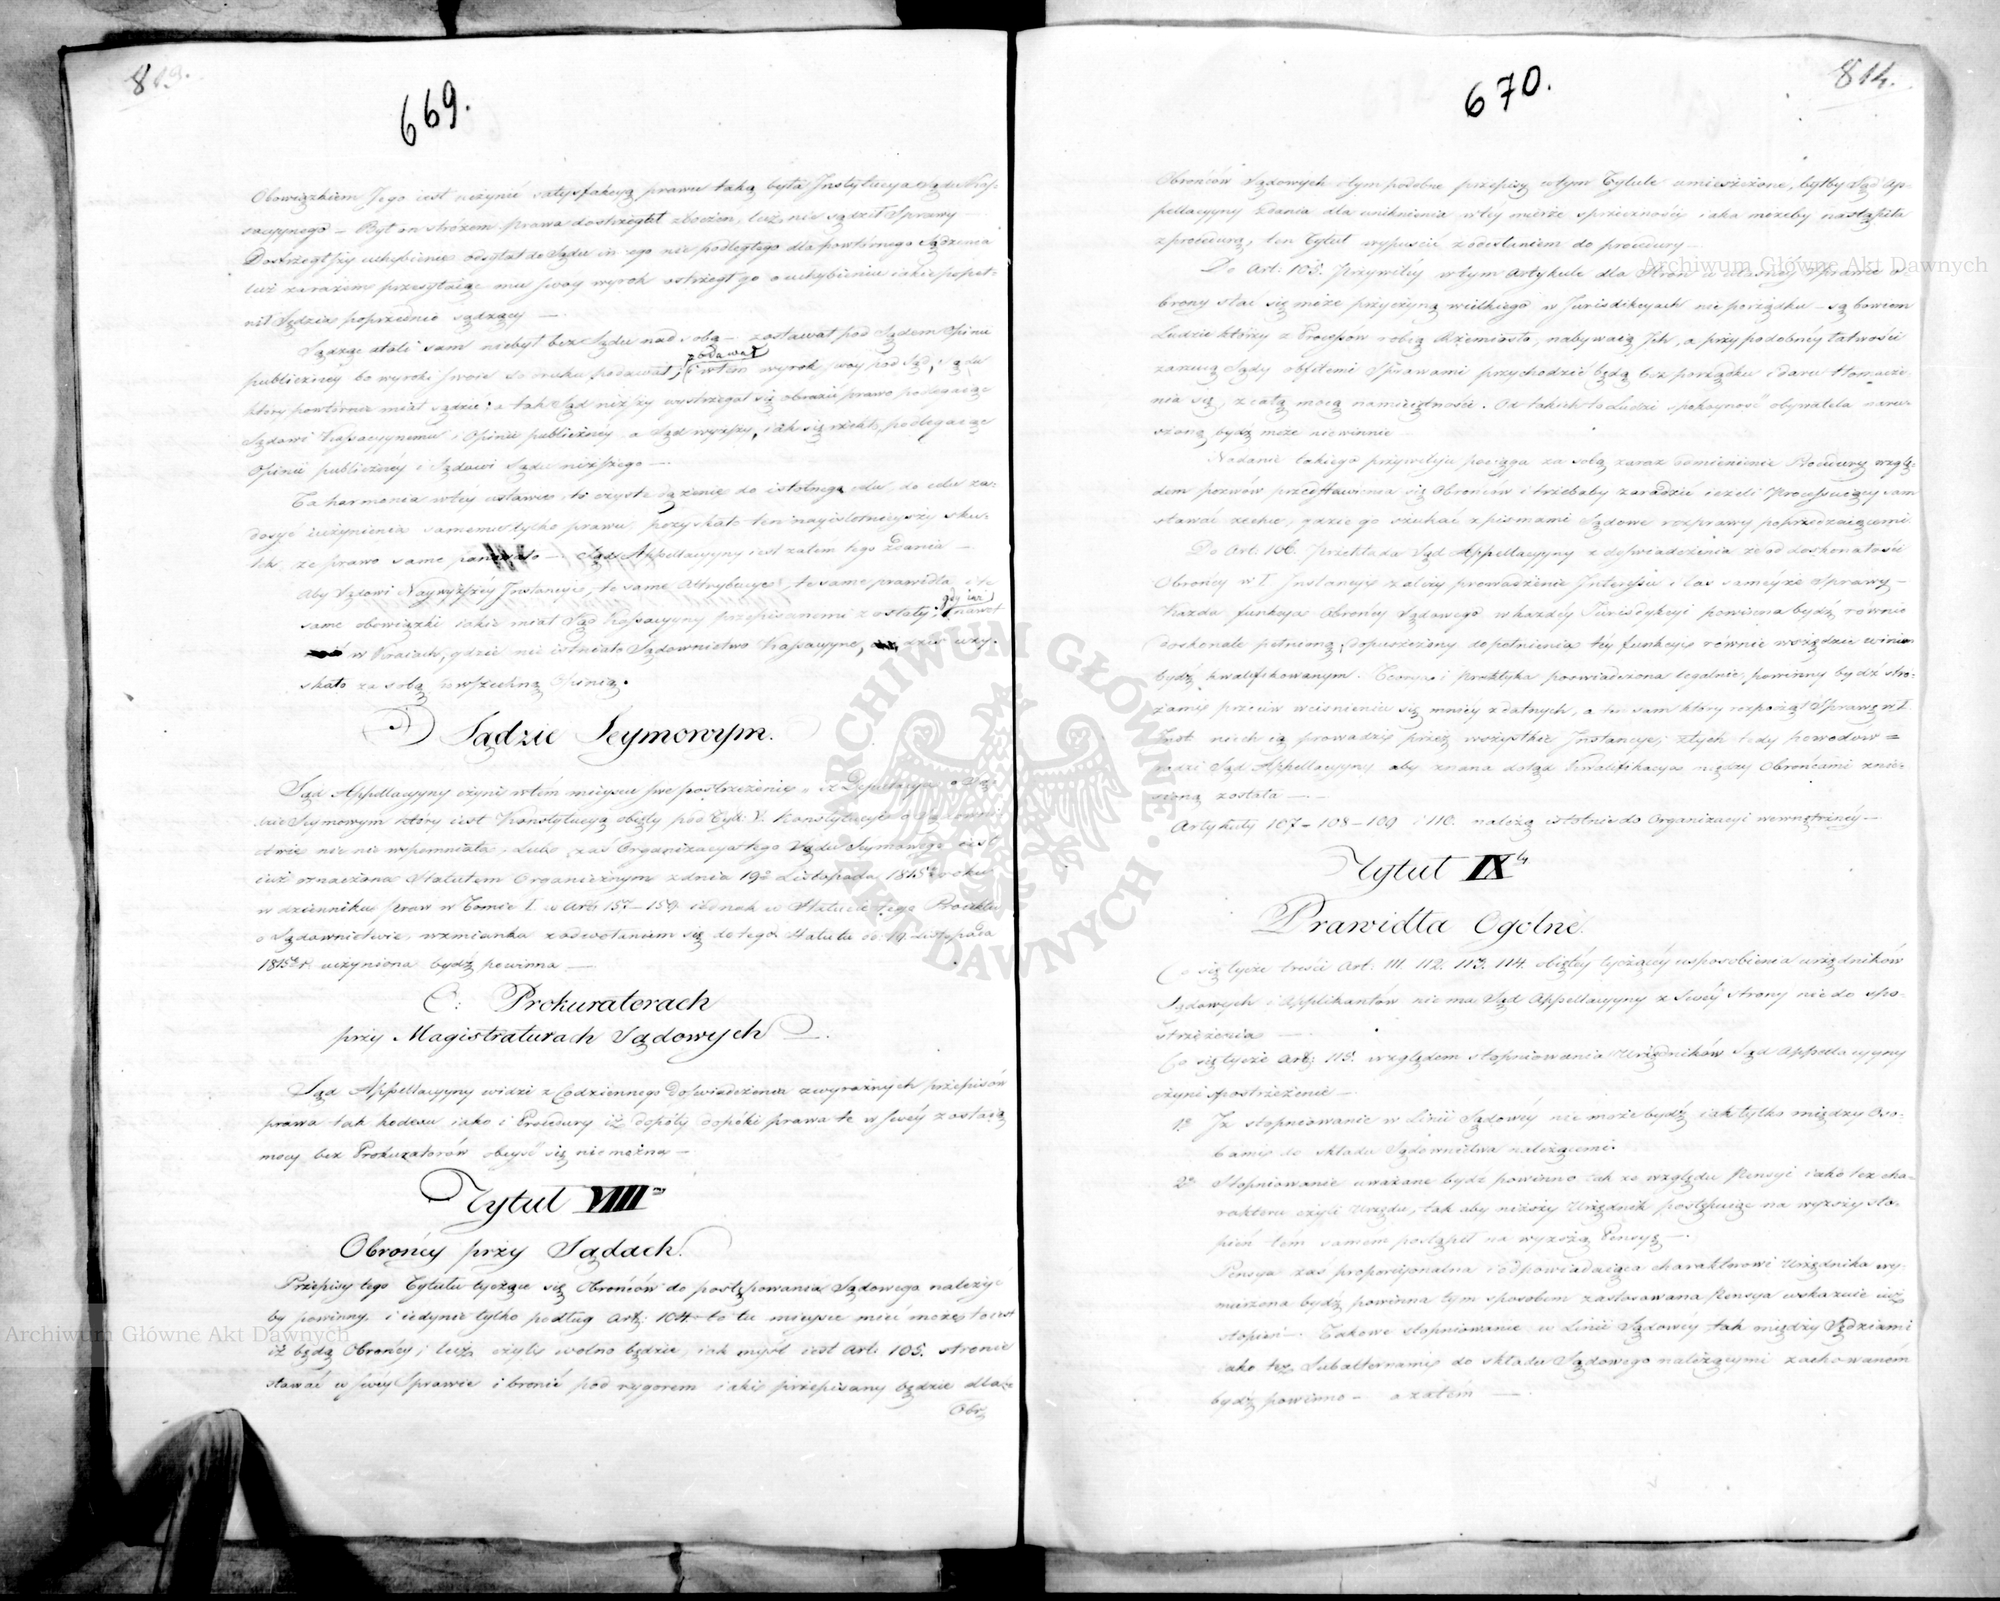 813.
669.
Obowiązkiem Jego iest uczynić satysfakcyą prawu taką była Instytucya Sądu Kas-
sacyynego — Był on stróżem prawa dostrzegał zboczeń, lecz nie sądził Sprawy —
Dostrzegłszy uchybienie odsyłał do Sądu in̄ego nie podległego dla powtórnego Sądzenia
lecz zarazem przesyłaiąc mu swoy wyrok ostrzegł go o uchybieniu iakie popeł-
nił Sędzia poprzednio sądzący —
Sądząc atoli sam niebył bez Sądu nad sobą — zostawał pod Sądem Opinii
publiczney bo wyroki swoie do druku podawał, i wtem zdawał wyrok swoy pod Sąd, Sądu
który powtórnie miał sądzić; a tak Sąd niższy wystrzegał się obrazić prawo podlegaiąc
Sądowi Kassacyynemu i Opinii publiczney a Sąd wyższy, iak się rzekło, podlegaiąc
Opinii publiczney i Sądowi Sądu niższego —
Ta harmonia w tey ustawie, to czyste dążenie do istotnego celu, do celu za-
dosyć uczynienia samemu tylko prawu, pozyskało ten nayistotnieyszy sku-
tek, że prawo same panowało — Sąd Appellacyyny iest zatem tego zdania —
Aby Sądowi Naywyższey Instancyi, te same Attrybucye, te same prawidła i te
same obowiązki iakie miał Sąd Kassacyyny przepisanemi zostały; gdy iuż nawet
w Kraiach, gdzie nie istniało Sądownictwo Kassacyyne, dziś uzy-
skało za sobą powszechną Opinią.
O Sądzie Seymowym.
Sąd Appellacyyny czyni w tém mieyscu swe postrzeżenie, iż Deputacya o Są-
dzie Seymowym który iest Konstytucyą obięty pod Tyt: V. Konstytucyi o Sądowni-
ctwie nic nie wspomniała. Lubo zaś Organizacya tego Sądu Seymowego iest
iuż oznaczona Statutem Organicznym z dnia 19o Listopada 1815o roku
w dzienniku Praw w Tomie I. w Art: 157–159 iednak w Statucie tego Proiektu
o Sądownictwie, wzmianka z odwołaniem się do tego Statutu do 19. Listopada
1815o r. uczyniona bydź powinna —
O: Prokuratorach
przy Magistraturach Sądowych.
Sąd Appellacyyny widzi z Codziennego doświadczenia z wyraźnych przepisów
prawa tak kodexu iako i Procedury iż dopóty dopóki prawa te w swéy zostaią
mocy bez Prokuratorów obeyść się nie można —
Tytuł VIIIII
Obrońcy przy Sądach.
Przepisy tego Tytułu tyczące się Obrońców do postępowania Sądowego należyć
by powinny, i iedynie tylko podług Art: 104. to tu mieysce mieć może, to iest
iż będą Obrońcy; lecz czyli wolno będzie, iak myśl iest Art: 105. stronie
stawać w swéy Sprawie i bronić pod rygorem iaki przepisany będzie dla
Obr
814.
670.
Obrońców Sądowych i tym podobne przepisy w tym Tytule umieszczone, byłby Sąd Ap-
pellacyyny zdania dla uniknienia w téy mierze sprzeczności iaka możeby nastąpiła
z procedurą, ten Tytuł wypuścić z odesłaniem do procedury —
Do Art: 105. Przywiléy w tym Artykule dla Stron w własnéy Sprawie o-
brony stać się może przyczyną wielkiego w Jurisdikcyach nieporządku — są bowiem
Ludzie którzy z Procesów robią Rzemiosło, nabywaią Ich, a przy podobnéy łatwości
zarzucą Sądy obfitemi Sprawami przychodzić będą bez porządku i daru tłomacze-
nia się, z całą mocą namiętności. Od takich to Ludzi spokoyność obywatela naru-
szoną bydź może niewinnie
Nadanie takiego przywileju pociąga za sobą zaraz odmienienie Procedury wzglę-
dem pozwów przedstawienia się Obrońców i trzebaby zaradzić ieżeli Processuiący sam
stawać zechce, gdzie go szukać z pismami Sądowe rozprawy poprzedzaiącemi.
Do Art: 106. Przekłada Sąd Appellacyyny z doświadczenia że od doskonałości
Obrońcy w I. Instancyi zależy prowadzenie Interessu i los saméyże Sprawy —
Każda funkcya Obrońcy Sądowego w każdéy Jurisdykcyi powinna bydź równie
doskonale pełnioną, dopuszczony do pełnienia téy funkcyi równie wszędzie winien
bydź kwalifikowanym. Teorya i praktyka poświadczona legalnie, powinny bydź stro-
żami przeciw wciśnieniu się mniéy zdatnych, a ten sam który rozpoczął Sprawę w I.
Inst. niech ią prowadzi przez wszystkie Instancye; z tych tedy powodów
radzi Sąd Appellacyyny aby znana dotąd Kwalifikacya między Obrońcami znie-
sioną została —
Artykuły 107 – 108 – 109 i 110. należą istotnie do Organizacyi wewnętrznéy —
Tytuł IXty
Prawidła Ogólne.
Co się tycze treści Art: 111. 112. 113. 114. obiętéy tyczącéy usposobienia urzędników
Sądowych i Applikantów nie ma Sąd Appellacyyny z Swéy strony nic do spo-
strzeżenia —
Co się tycze Art: 115. względem stopniowania Urzędników Sąd Appellacyyny
czyni spostrzeżenie —
1o Iż stopniowanie w Linii Sądowéy nie może bydź iak tylko między Oso-
bami do składu Sądownictwa należącemi.
2o Stopniowanie uważane bydź powinno tak ze względu Pensyi iako też cha-
rakteru czyli Urzędu, tak aby niższy Urzędnik postępuiąc na wyższy sto-
pień tem samem postąpił na wyższą Pensyę —.
Pensya zaś proporcyonalna i odpowiadaiąca charakterowi Urzędnika wy-
mierzona bydź powinna tym sposobem zastosowana Pensya wskazuie iuż
stopień —. Takowe stopniowanie w Linii Sądowéy tak między Sędziami
iako też Subalternami do składu Sądowego należącymi zachowaném
bydź powinno — a zatém —
Archiwum Główne Akt Dawnych
Archiwum Główne Akt Dawnych
ARCHIWUM GŁÓWNE AKT DAWNYCH